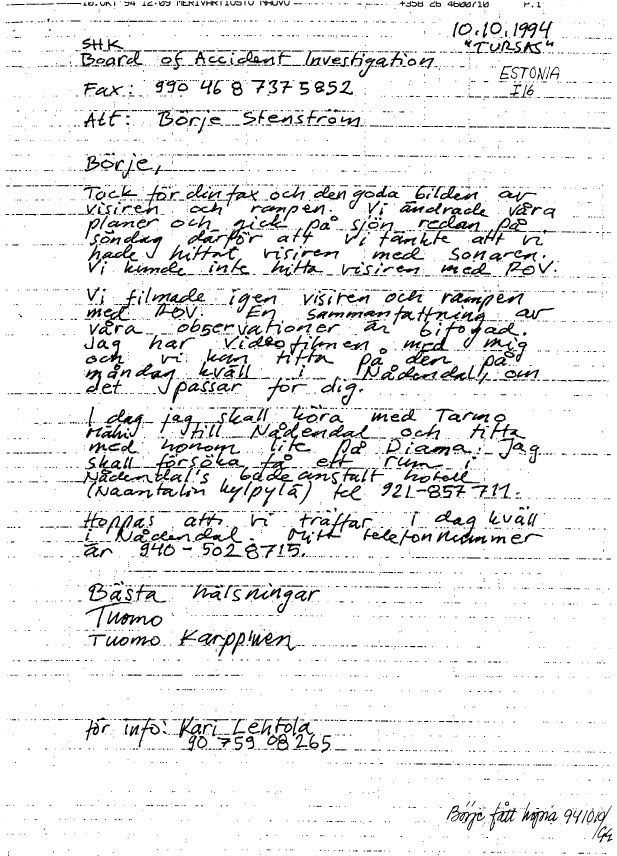 10.OKT 94 12:09 MERIVARTIOSTO NAUVO +358 26 4600710 P.1
10.10.1994
"TURSAS"
SHK
Board of Accident Investigation
ESTONIA
I16
Fax: 990 46 8 737 5852
Att: Börje Stenström
Börje,
Tack för din fax och den goda bilden av
visiren och rampen. Vi ändrade våra
planer och gick på sjön redan på
söndag därför att vi tänkte att vi
hade hittat visiren med sonaren.
Vi kunde inte hitta visiren med ROV.
Vi filmade igen visiren och rampen
med ROV. En sammanfattning av
våra observationer är bifogad.
Jag har videofilmen med mig
och vi kan titta på den på
måndag kväll i Nådendal, om
det passar för dig.
I dag jag skall köra med Tarmo
till Nådendal och titta
med honom lite på Diana. Jag
skall försöka få ett rum i
Nådendal's badeanstalt hotell
(Naantalin kylpylä) tel 921-857 711.
Hoppas att vi träffar i dag kväll
i Nådendal. Mitt telefonnummer
är 940-5028715.
Bästa hälsningar
Tuomo
Tuomo Karppinen
för info: Kari Lehtola
90 759 08 265
Börje fått kopia 941010/